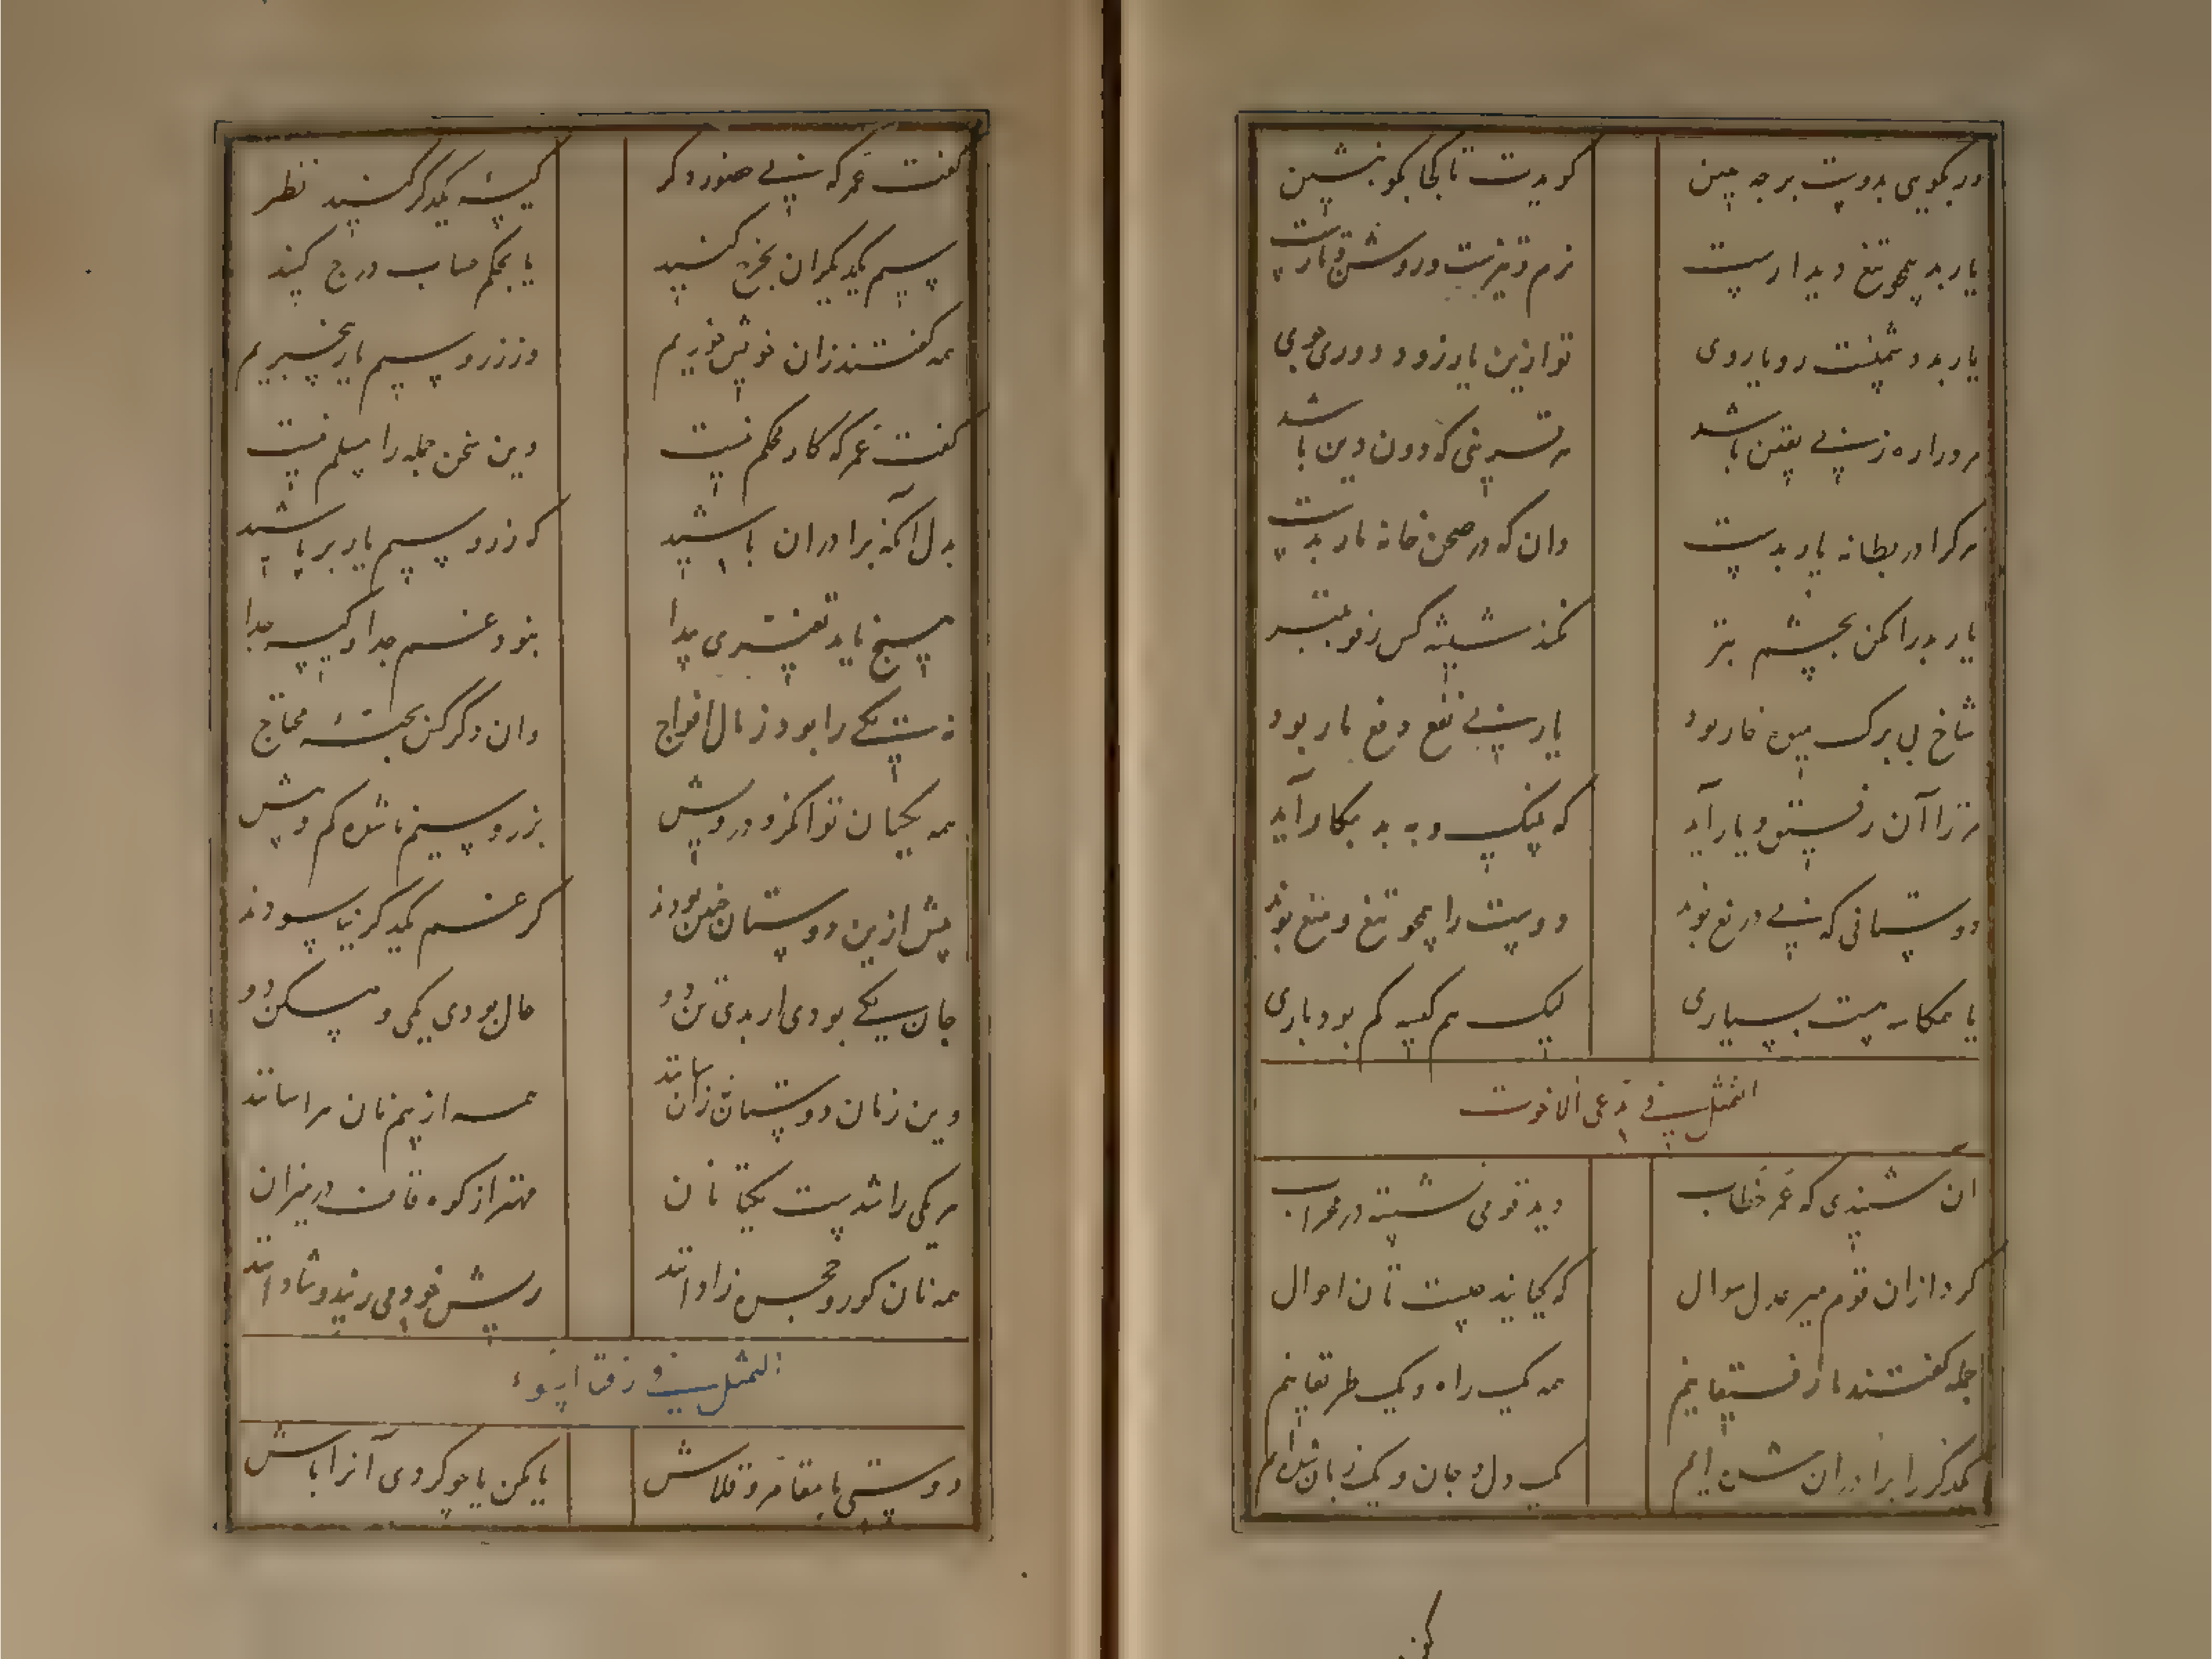 ور بگویی بدوست برجه هین
گویدت تا کجا بگو بنشین
یار بد همچو تیغ دیدارست
نرم و تیزست و روشن و
یار بد دشمنست رویاروی
تو ازین یار زود دوری جوی
مرد را ره ز بی یقین باشد
که دون دین باشد
هر کرا در بطانه یار بدست
وان که در صحن خانه مار بدست
یار بد را مکن بچشم
نکند شیشه کس
شاخ بی برگ میوه خار بود
یار بی نفع و دفع مار بود
مر ترا آن رفیق و یار آید
که به نیک و به بد بکار آید
دوستانی که بی دریغ بوند
دوست را همچو تیغ و میغ بوند
یا همکاسه هست بسیاری
لیک هم کیسه کم بود باری
التمثل فی مدعی الاخوت
آن شنیدی که عمر خطاب
دید قومی نشسته در محراب
کرد ازان قوم میر عدل سوال
که کجایید چیست تان احوال
جمله گفتند ما رفیقانیم
همه یک راه و یک طریقانیم
یکدگر را برادران شده ایم
یک دل و جان و یک زبان شده ایم
گفت عمر که بی حضور دگر
کیسه یکدگر کنید نظر
سیم یکدیگران بخرج کنید
یا بحکم حساب درج کنید
همه گفتند زان خویش خوریم
وز زر و سیم یار بیخبریم
گفت عمر که کار محکم نیست
وین سخن جمله را مسلم نیست
بدل آنگه برادران باشید
که زر و سیم یار بر پاشید
هیچ ناید تفتری پیدا
نبود غم جدا و کیسه جدا
نه یکی را بود ز مال افواج
وان دگر کس بحبه محتاج
همه یکسان توانگر و درویش
بزر و سیم ناشده کم و بیش
پیش ازین دوستان چنین بودند
کز غم یکدگر نیاسودند
جان یکی بودی ار بدی تن دو
حال بودی یکی و مسکن دو
وین زمان دوستان
همه از بیم نان هراسانند
هر یکی را شدست یکتا نان
مهتر از کوه قاف در میزان
همه نان کور و محبس زادانند
ریش خود می ریند و شادانند
التمثل فی
دوستی با مقامر و قلاش
یا مکن یا چو کردی آنرا باش
گفت